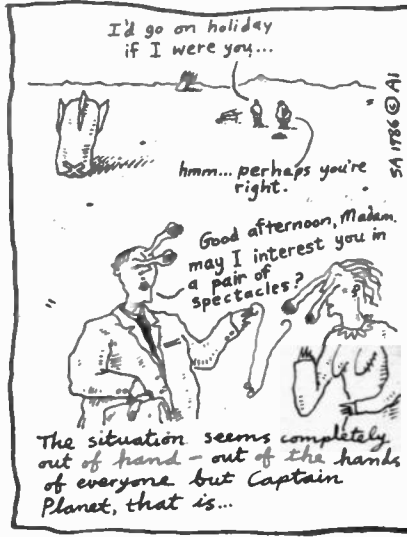 I'd go on holiday
if I were you...
hmm... perhaps you're
right.
SA 1986 © AI
Good afternoon, Madam.
may I interest you in
a pair of
spectacles?
The situation seems completely
out of hand - out of the hands
of everyone but Captain
Planet, that is...